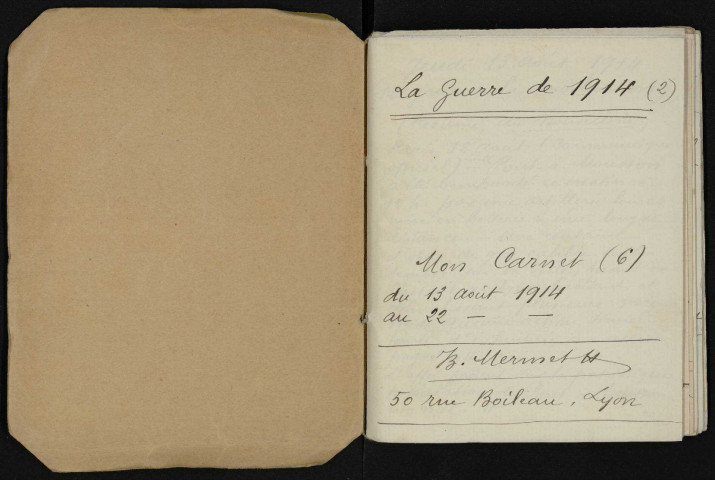 La Guerre de 1914 (2)
Mon Carnet (6)
du 13 août 1914
au 22 — —
B. Mermet
50 rue Boileau, Lyon